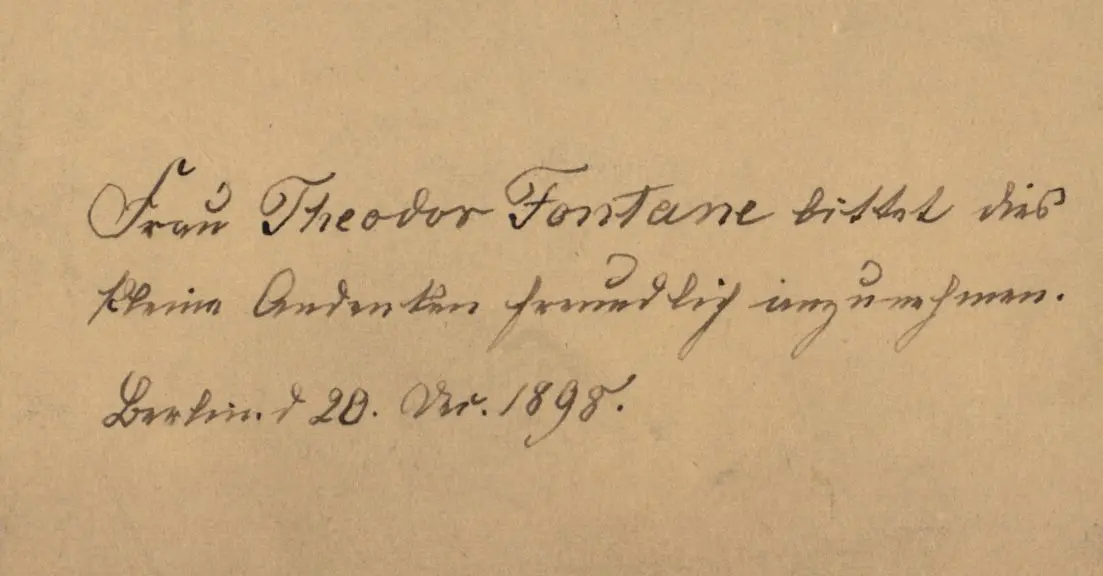 Frau Theodor Fontane bittet dies
kleine Andenken freundlich anzunehmen.
Berlin. d 20. Dec. 1898.